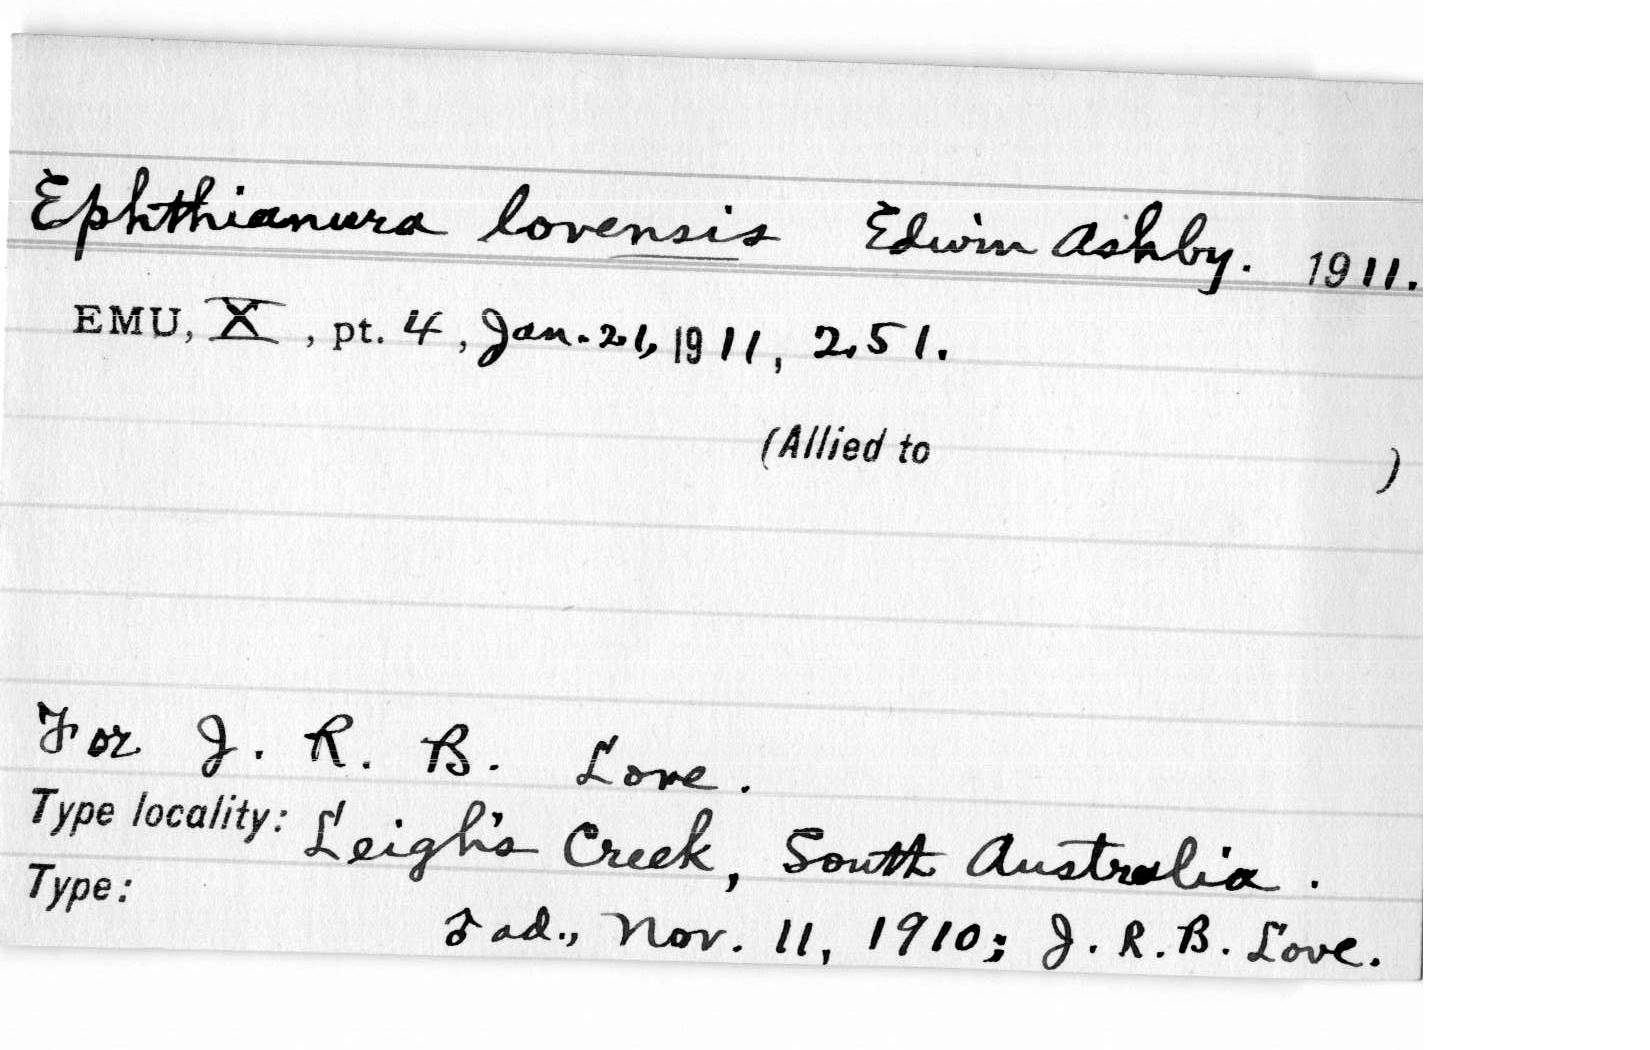 Ephthianura lovensis Edwin Ashby. 1911.
EMU, X, pt. 4, Jan. 21, 1911, 251.
(Allied to )
For J. R. B. Love.
Type locality: Leigh's Creek, South Australia.
Type:
♂ ad., Nov. 11, 1910; J. R. B. Love.